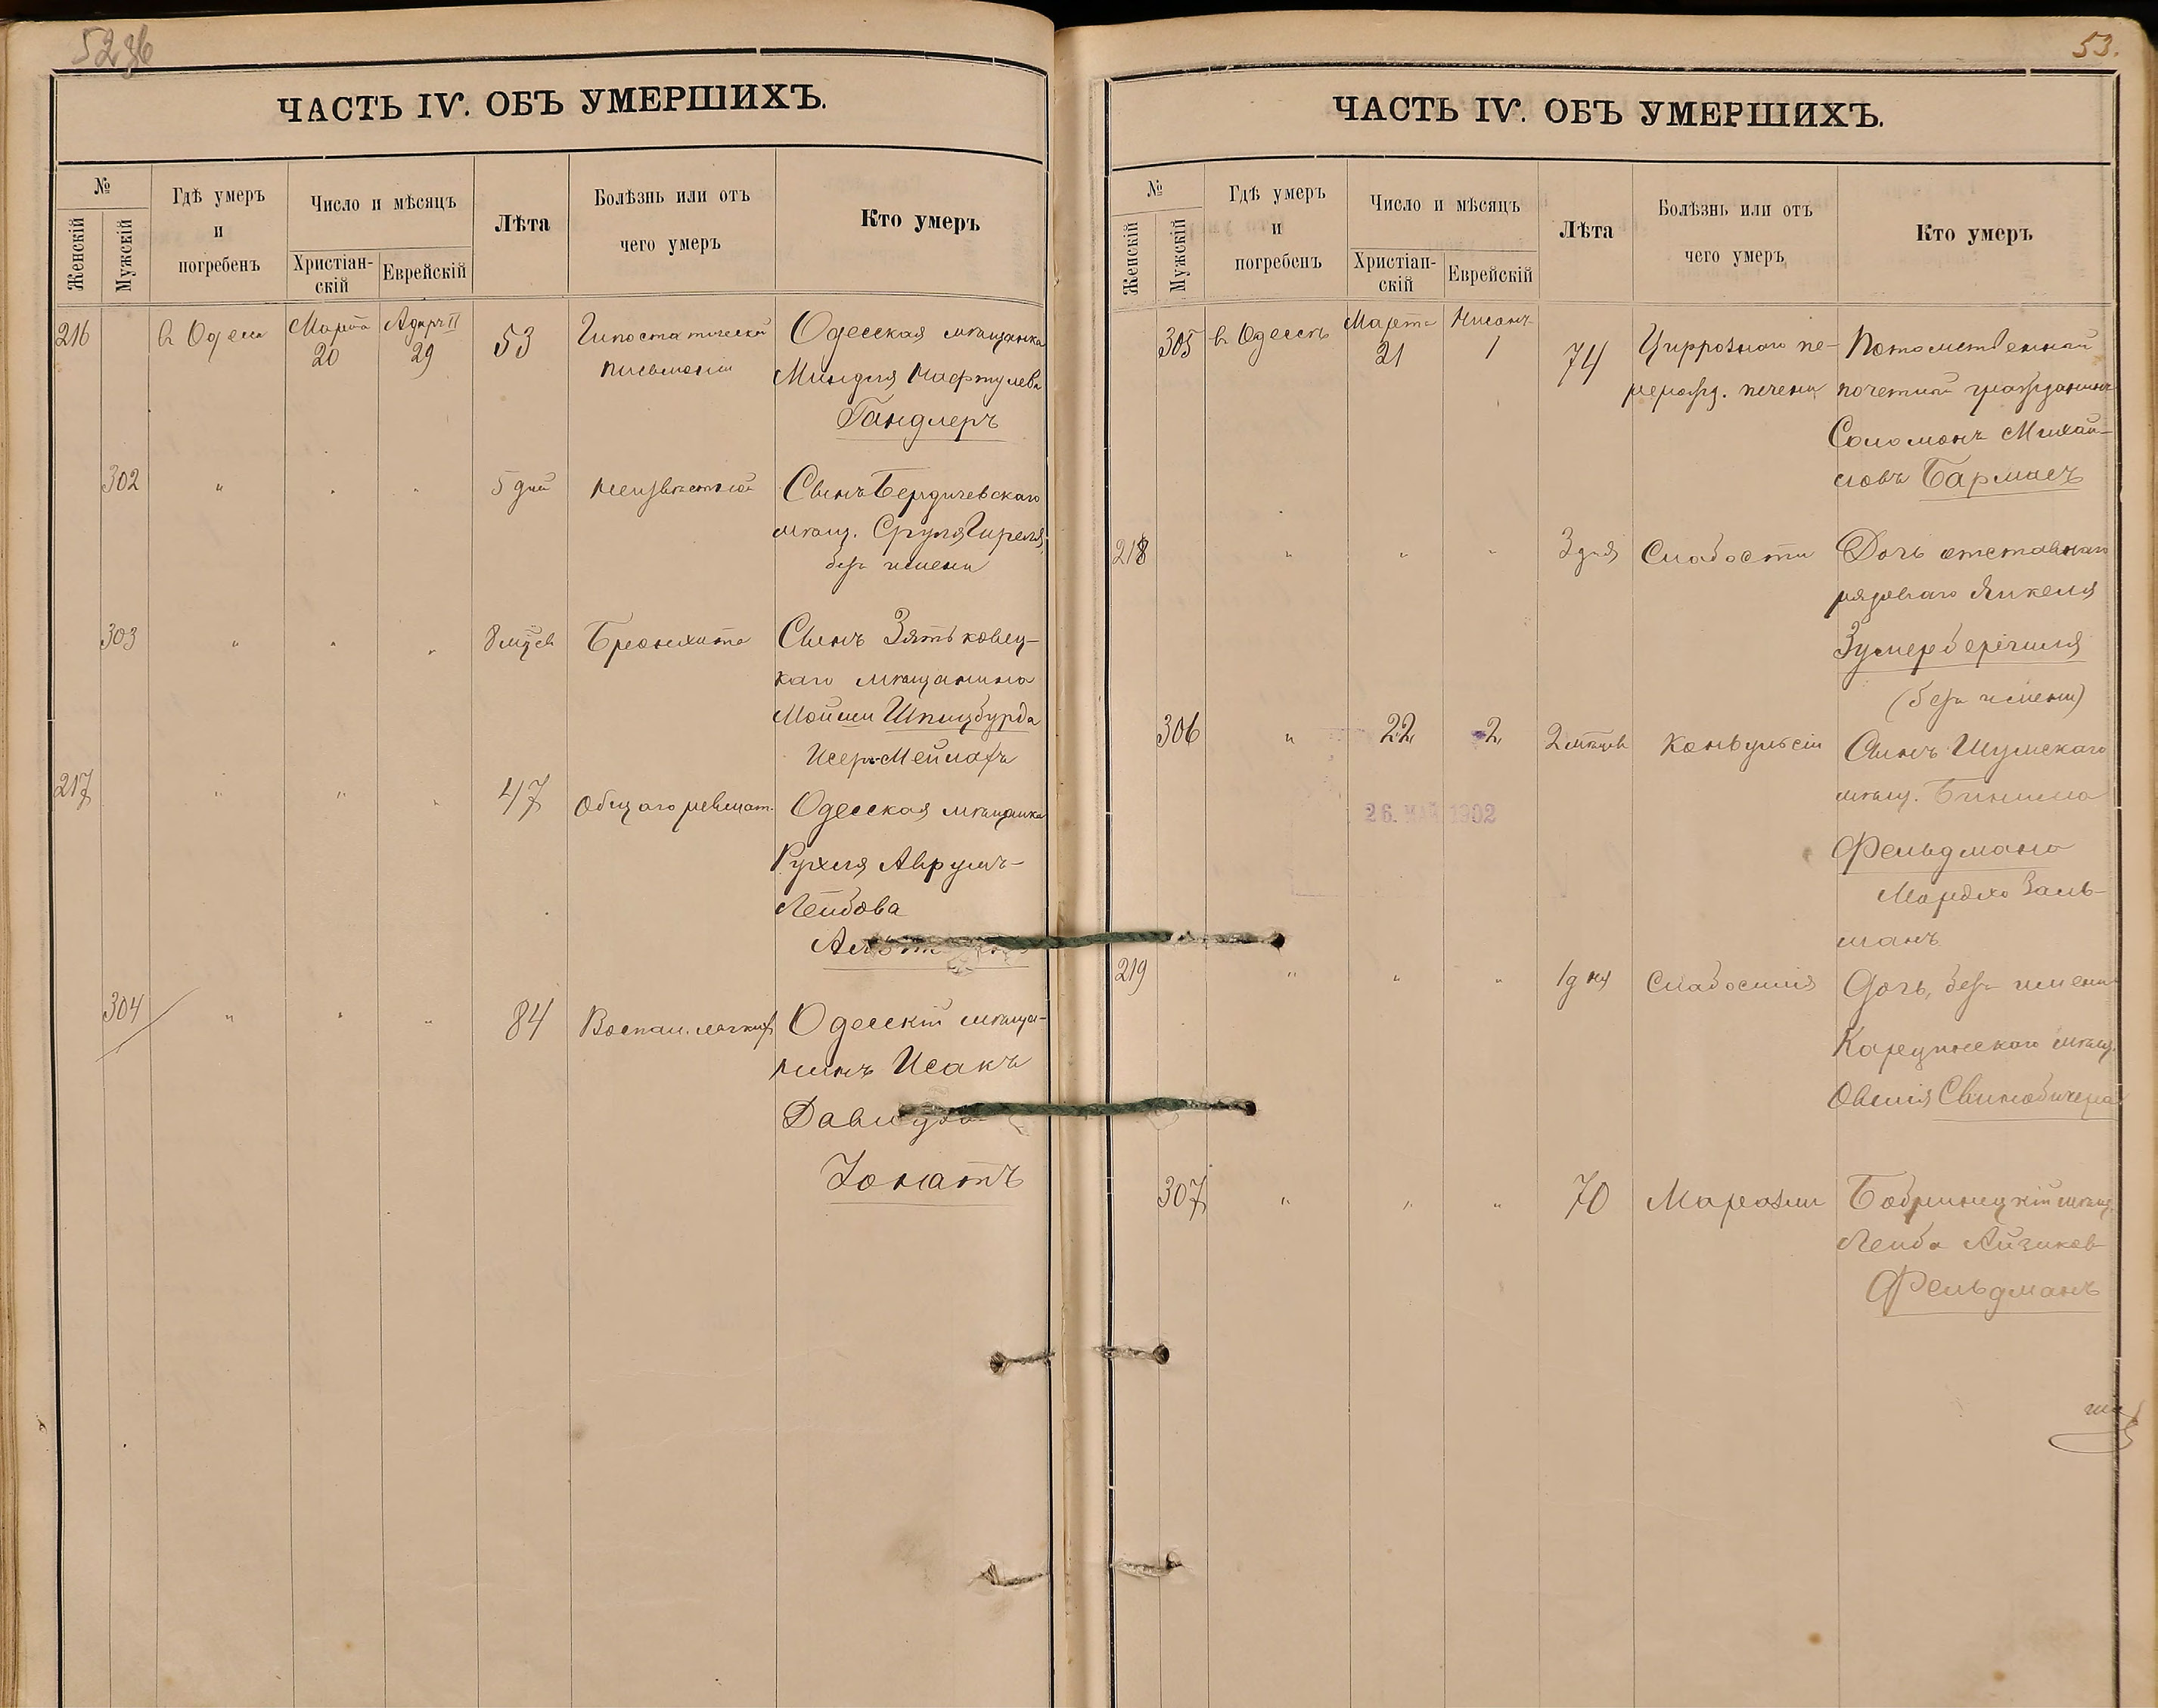 5236
ЧАСТЬ IV. ОБЪ УМЕРШИХЪ.
№
Женскій
Мужскій
Гдѣ умеръ
и
погребенъ
Число и мѣсяцъ
Христіан-
скій
Еврейскій
Лѣта
Болѣзнь или отъ
чего умеръ
Кто умеръ
216
в Одесѣ
Марта
20
Адаръ II
29
53
Гипостатической
пневмоніи
Одесская мѣщанка
Миндля Нафтулева
Гандлеръ
302
"
"
"
5 дней
Неизвѣстной
Сынъ Бердичевскаго
мѣщ. Сруля
безъ имени
303
"
"
"
8 мѣсяц
Бронхита
Сынъ Зятьковец-
каго мѣщанина
Мойши Шпицбурда
Исеръ-Мейлахъ
217
"
"
"
47
Общаго ревмат.
Одесская мѣщанка
Рухля Аврумъ-
Лейбова
304
"
"
"
84
Воспал. легкихъ
Одесскій мѣща-
нинъ Исакъ
Зонатъ
53.
ЧАСТЬ IV. ОБЪ УМЕРШИХЪ.
№
Женскій
Мужскій
Гдѣ умеръ
и
погребенъ
Число и мѣсяцъ
Христіан-
скій
Еврейскій
Лѣта
Болѣзнь или отъ
чего умеръ
Кто умеръ
305
в Одессѣ
Марта
21
Нисанъ
1
74
Циррознаго пе-
рерожд. печени
Потомственный
почетный гражданинъ
Соломонъ Михай-
ловъ Бармасъ
218
"
"
"
3 дня
Слабости
Дочь отставнаго
рядоваго Янкеля
(безъ имени)
306
"
22
2
2 мѣсяцъ
Конвульсіи
Сынъ Шумскаго
мѣщ. Бинима
Фельдмана
Мардхо Заль-
манъ
26. МАЙ 1902
219
"
"
"
1 дня
Слабостія
Дочь, безъ имени
мѣщ.
Овшія
307
"
"
"
70
Маразми
Бобринецкій мѣщ.
Лейба Айзиков
Фельдманъ